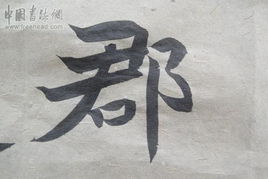 中国书法网
www.freehead.com
郡